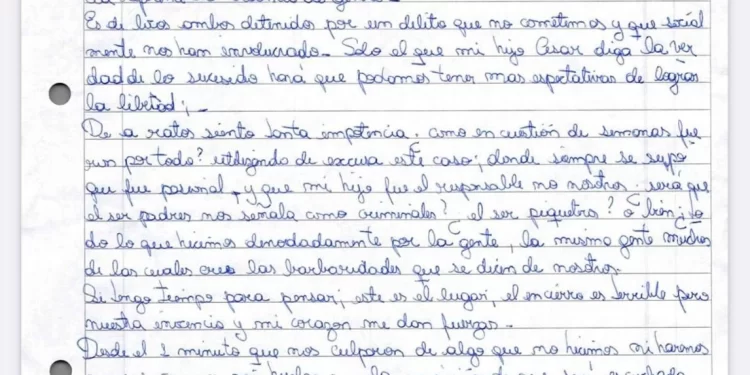 Es de locos ambos detenidos por un delito que no cometimos y que social
mente nos han involucrado. Solo el que mi hijo Cesar diga la ver
dad de lo sucesido hará que podamos tener mas espectativas de lograr
la libertad; -
De a ratos siento tanta impotencia. como en cuestión de semanas fue
ron por todo? utilizando de excusa este caso; donde siempre se supo
que fue pasional, y que mi hijo fue el responsable no nosotros. será que
el ser padres nos señala como criminales? el ser piqueteros? o bien; to
do lo que hicimos denodadamente por la gente, la misma gente muchos
de las cuales cree las barbaridades que se dicen de nosotros.
Si tengo tiempo para pensar; este es el lugar; el encierro es terrible pero
nuestra inocencia y mi corazon me dan fuerzas -
Desde el 1 minuto que nos culparon de algo que no hicimos ni haremos